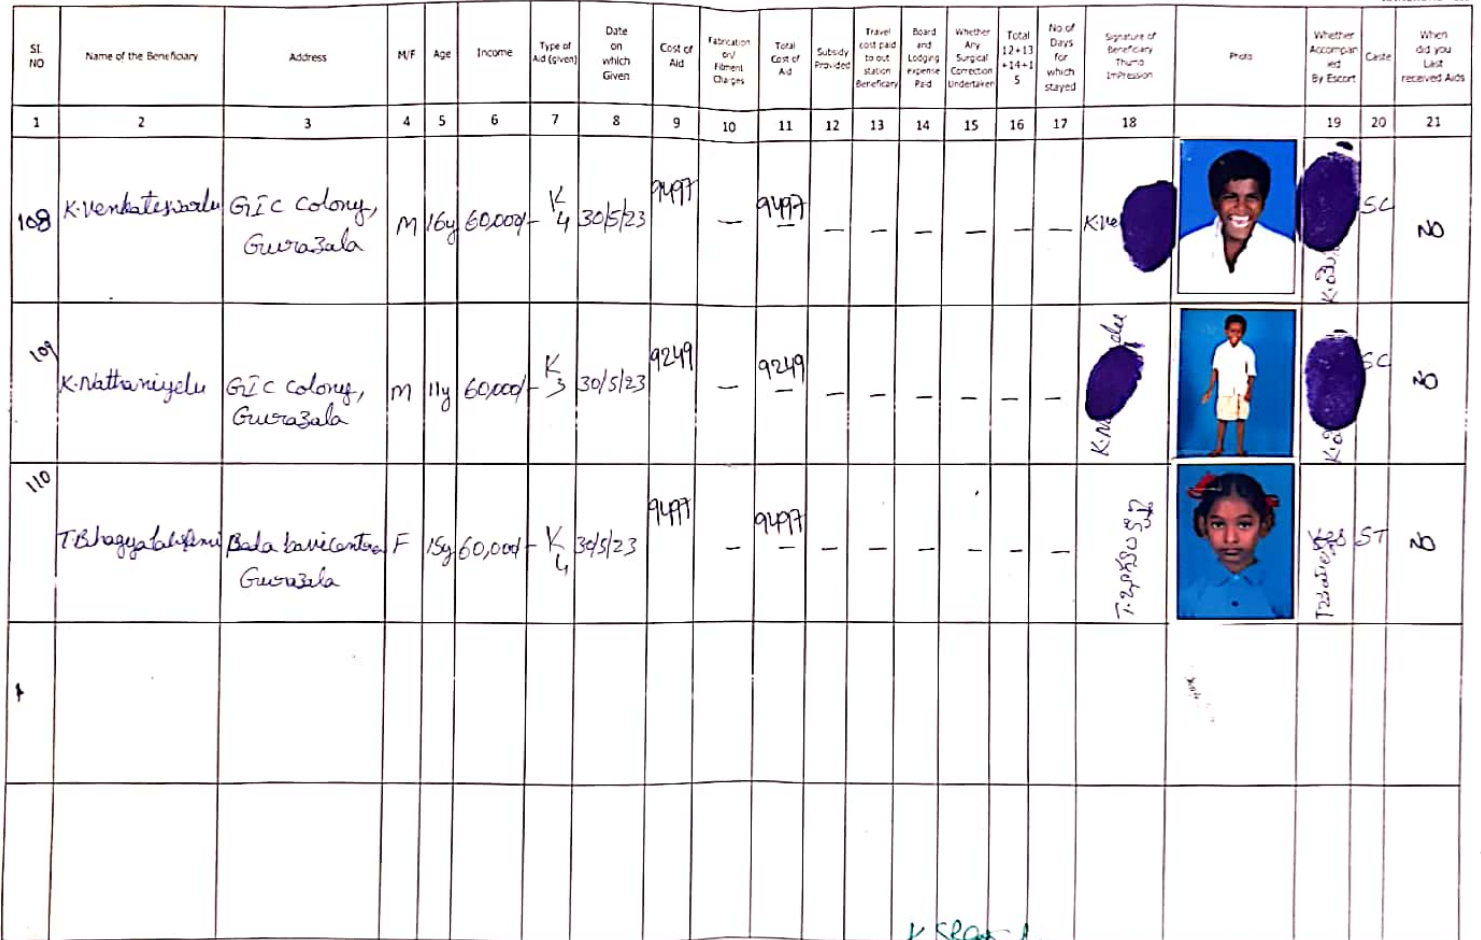 Sl. NO
Name of the Beneficiary
Address
M/F
Age
Income
Type of Aid (given)
Date on which Given
Cost of Aid
Fabrication or/ Fitment Charges
Total Cost of Aid
Subsidy Provided
Travel cost paid to out station Beneficiary
Board and Lodging expense Paid
Whether Any Surgical Correction Undertaken
Total 12+13+14+15
No.of Days for which stayed
Signature of Beneficiary Thumb Impression
Photo
Whether Accompanied By Escort
Caste
When did you Last received Aids
1 2 3 4 5 6 7 8 9 10 11 12 13 14 15 16 17 18 19 20 21
108 K.Venkateswarlu GIC Colony, Gurazala M 16y 60,000/- K4 30/5/23 9497 — 9497 — — — — — — SC NO
109 K.Nathaniyelu GIC Colony, Gurazala M 11y 60,000/- K3 30/5/23 9249 — 9249 — — — — — — SC NO
110 T.Bhagyalakshmi Gurazala F 15y 60,000/- K4 30/5/23 9497 — 9497 — — — — — — ST NO